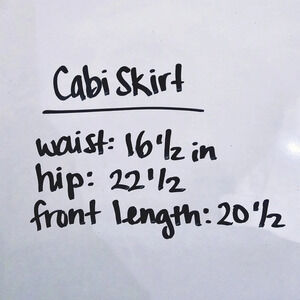 Cabi Skirt
waist: 16 1/2 in
hip: 22 1/2
front length: 20 1/2